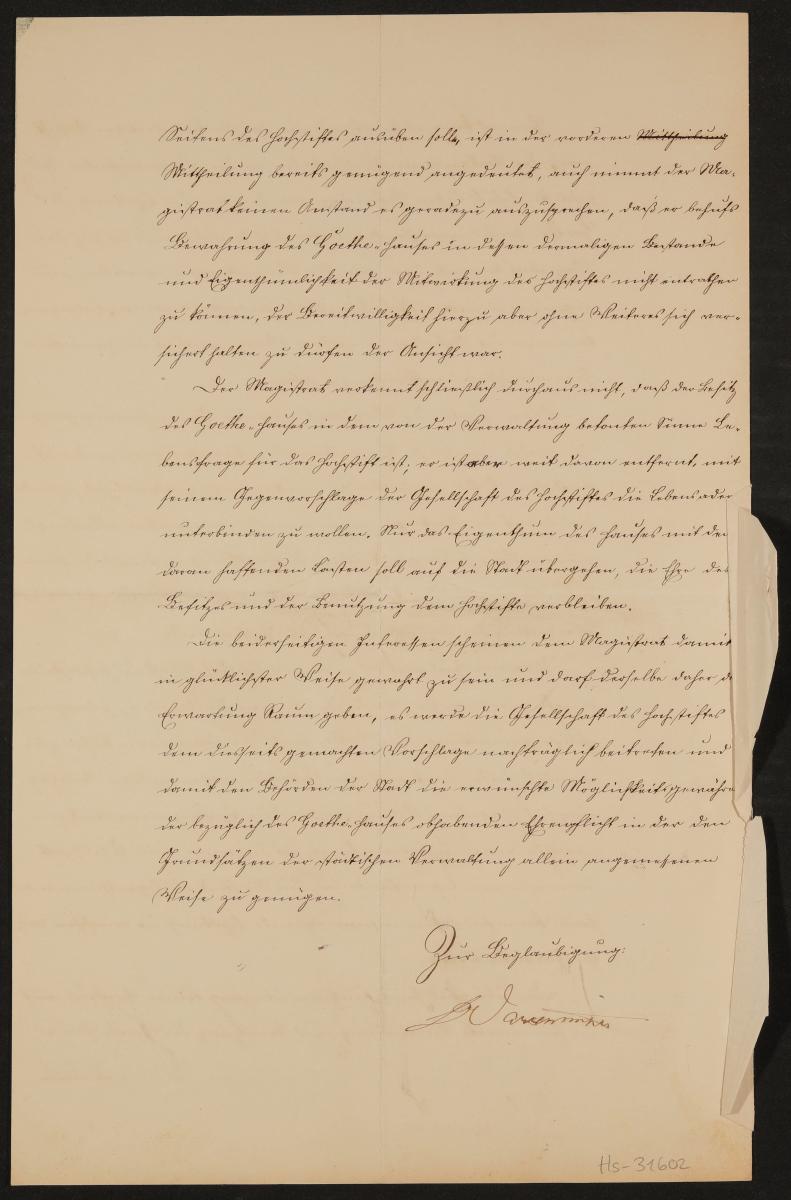 Seitens des Hochstiftes ausüben solle, ist in der vorderen Mittheilung
Mittheilung bereits genügend angedeutet, auch nimmt der Ma-
gistrat keinen Anstand es geradezu auszusprechen, daß er behufs
Bewahrung des Goethe-Hauses in dessen dermaligen Bestande
und Eigenthümlichkeit der Mitwirkung des Hochstiftes nicht entrathen
zu können, der Bereitwilligkeit hierzu aber ohne Weiteres sich ver-
sichert halten zu dürfen der Ansicht war.
Der Magistrat verkennt schließlich durchaus nicht, daß der Besitz
des Goethe-Hauses in dem von der Verwaltung betonten Sinne Le-
bensfrage für das Hochstift ist; er ist aber weit davon entfernt, mit
seinem Gegenvorschlage der Gesellschaft des Hochstiftes die Lebensader
unterbinden zu wollen. Nur das Eigenthum des Hauses mit den
daran haftenden Lasten soll auf die Stadt übergehen, die Ehre des
Besitzes und der Benutzung dem Hochstifte verbleiben.
Die beiderseitigen Interessen scheinen dem Magistrat damit
in glücklichster Weise gewahrt zu sein und darf derselbe daher d
Erwartung Raum geben, es werde die Gesellschaft des Hochstiftes
dem diesseits gemachten Vorschlage nachträglich beitreten und
damit den Behörden der Stadt die erwünschte Möglichkeit gewähre
der bezüglich des Goethe-Hauses obhabenden Ehrenpflicht in der den
Grundsätzen der städtischen Verwaltung allein angemessenen
Weise zu genügen.
Zur Beglaubigung:
Hs-31602